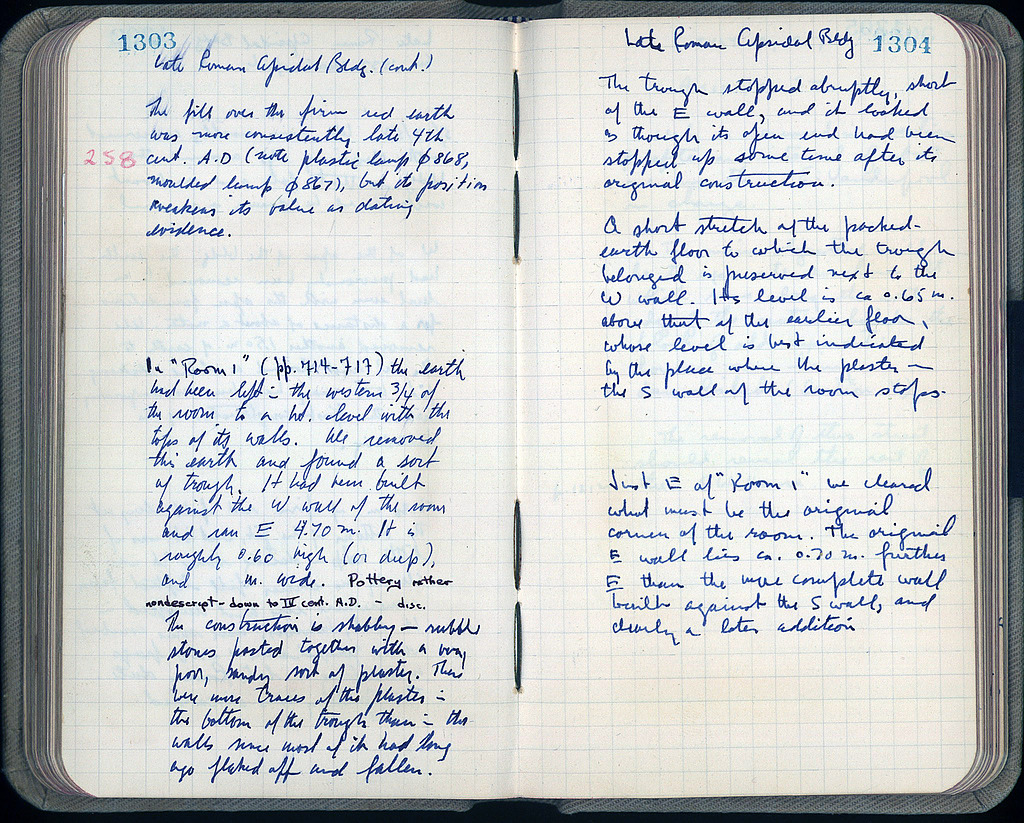 1303
Late Roman Apsidal Bldg. (cont.)
The fill over the firm red earth
was more consistently late 4th
258 cent. A.D (note plastic lamp φ868,
moulded lamp φ867), but its position
weakens its value as dating
evidence.
In "Room 1" (pp. 714-717) the earth
had been left in the western 3/4 of
the room to a ht. level with the
tops of its walls. We removed
this earth and found a sort
of trough. It had been built
against the W wall of the room
and ran E 4.70 m. It is
roughly 0.60 high (or deep),
and m. wide. Pottery rather
nondescript - down to IV cent. A.D. - disc.
The construction is shabby — rubble
stones pasted together with a very
poor, sandy sort of plaster. There
were more traces of this plaster in
the bottom of the trough than in the
walls since most of it had long
ago flaked off and fallen.
Late Roman Apsidal Bldg 1304
The trough stopped abruptly, short
of the E wall, and it looked
as though its open end had been
stopped up some time after its
original construction.
A short stretch of the packed-
earth floor to which the trough
belonged is preserved next to the
W wall. Its level is ca 0.65 m.
above that of the earlier floor,
whose level is best indicated
by the place where the plaster on
the S wall of the room stops.
Just E of "Room 1" we cleared
what must be the original
corner of the room. The original
E wall lies ca. 0.70 m. further
E than the more complete wall
built against the S wall, and
clearly a later addition